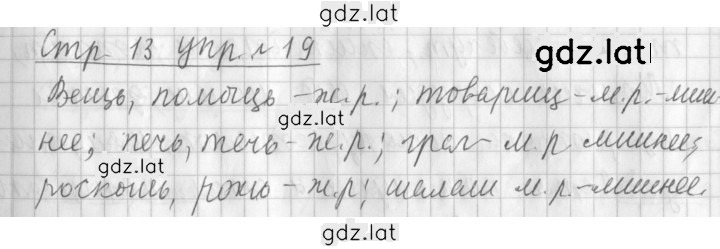 gdz.lat
Стр 13 упр. № 19
gdz.lat
Вещь, помощь - ж.р.; товарищ - м.р. - лиш-
gdz.lat
нее; печь, течь - ж.р.; грач - м.р лишнее;
gdz.lat
роскошь, рожь - ж.р; шалаш м.р. - лишнее.
gdz.lat